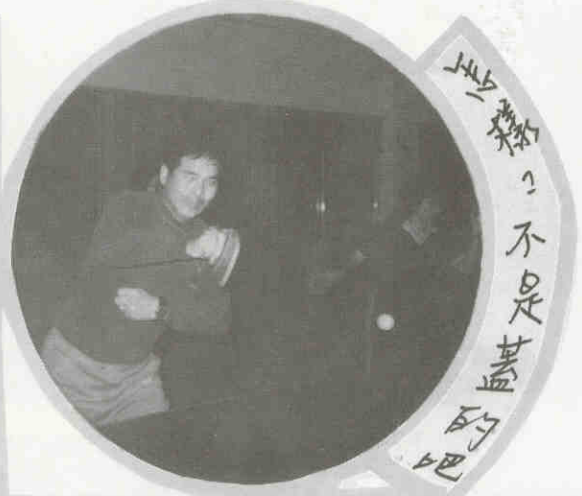 怎樣？不是蓋的吧